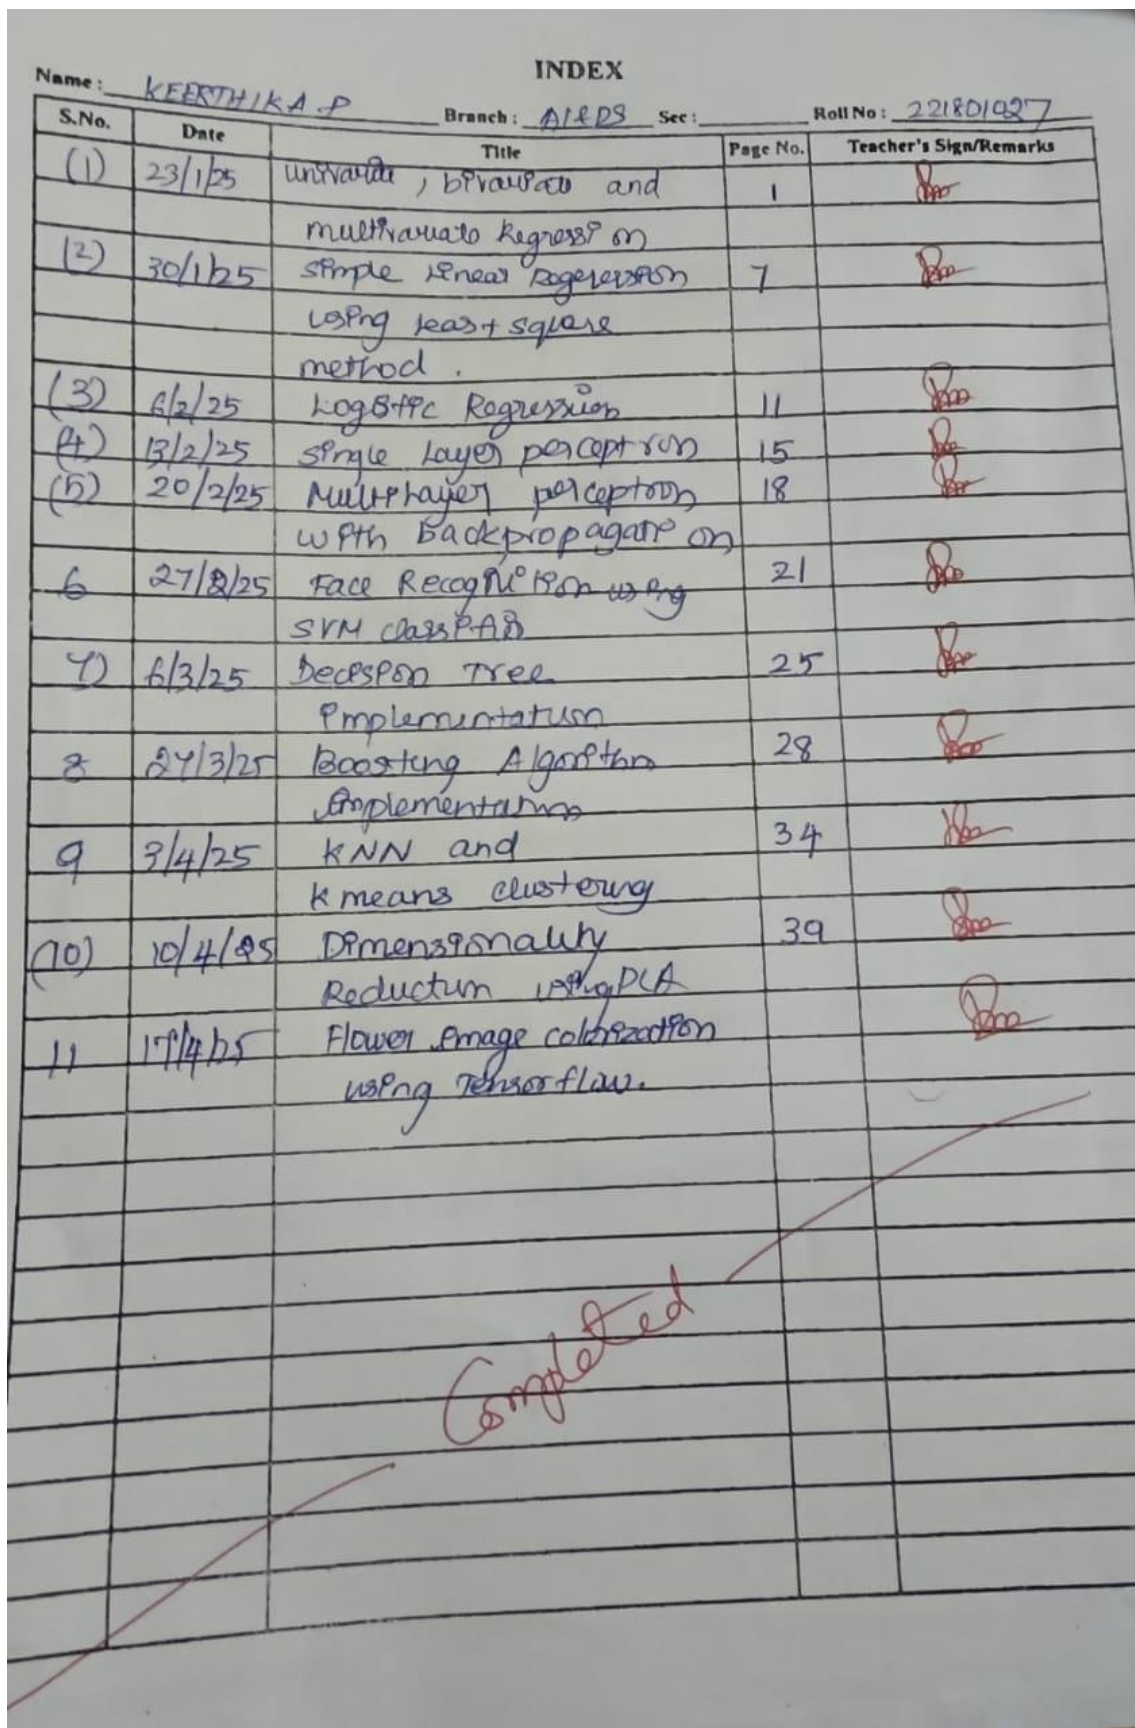 INDEX
Name: KEERTHIKA P Branch: AI&DS Sec: Roll No: 221801027
S.No. Date Title Page No. Teacher's Sign/Remarks
(1) 23/1/25 univariate, bivariate and 1
multivariate Regression
(2) 30/1/25 simple linear Regression 7
using least square
method.
(3) 6/2/25 Logistic Regression 11
(4) 13/2/25 single layer perceptron 15
(5) 20/2/25 Multilayer perceptron 18
with Backpropagation
6 27/2/25 Face Recognition using 21
SVM
7) 6/3/25 Decision Tree 25
implementation
8 27/3/25 Boosting Algorithm 28
implementation
9 3/4/25 KNN and 34
k means clustering
(10) 10/4/25 Dimensionality 39
Reduction using PCA
11 17/4/25 Flower image colorization
using Tensorflow.
Completed